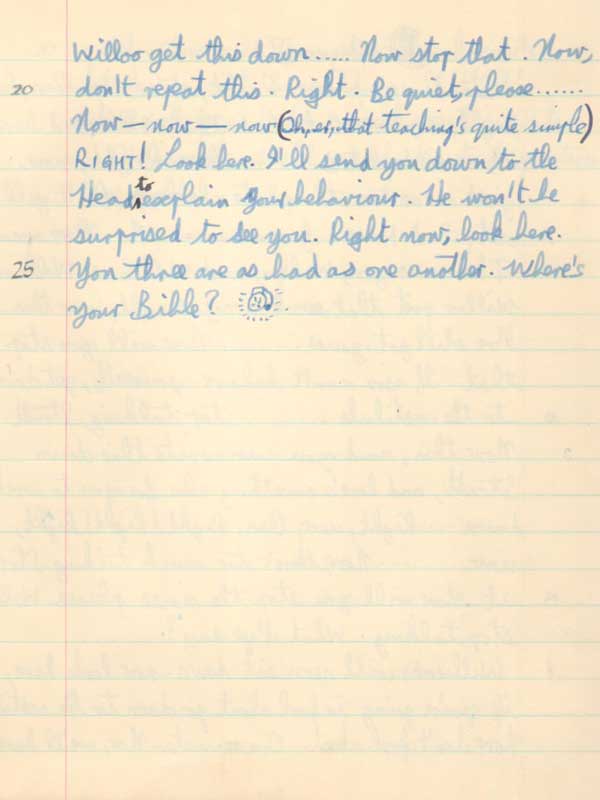 Willoo get this down..... Now stop that. Now,
20 don't repeat this. Right. Be quiet, please......
Now — now — now (Oh, er, that teaching's quite simple)
RIGHT! Look here. I'll send you down to the
Head, to explain your behaviour. He won't be
surprised to see you. Right now, look here.
25 You three are as bad as one another. Where's
your Bible?